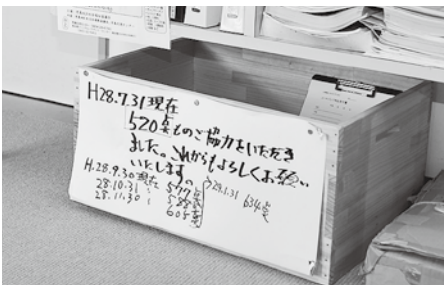 H28.7.31現在
520点ものご協力をいただき
ました。これからもよろしくお願い
いたします。
H.28.9.30現在 577点
28.10.31 〃 588点
28.11.30 〃 605点
29.1.31 634点